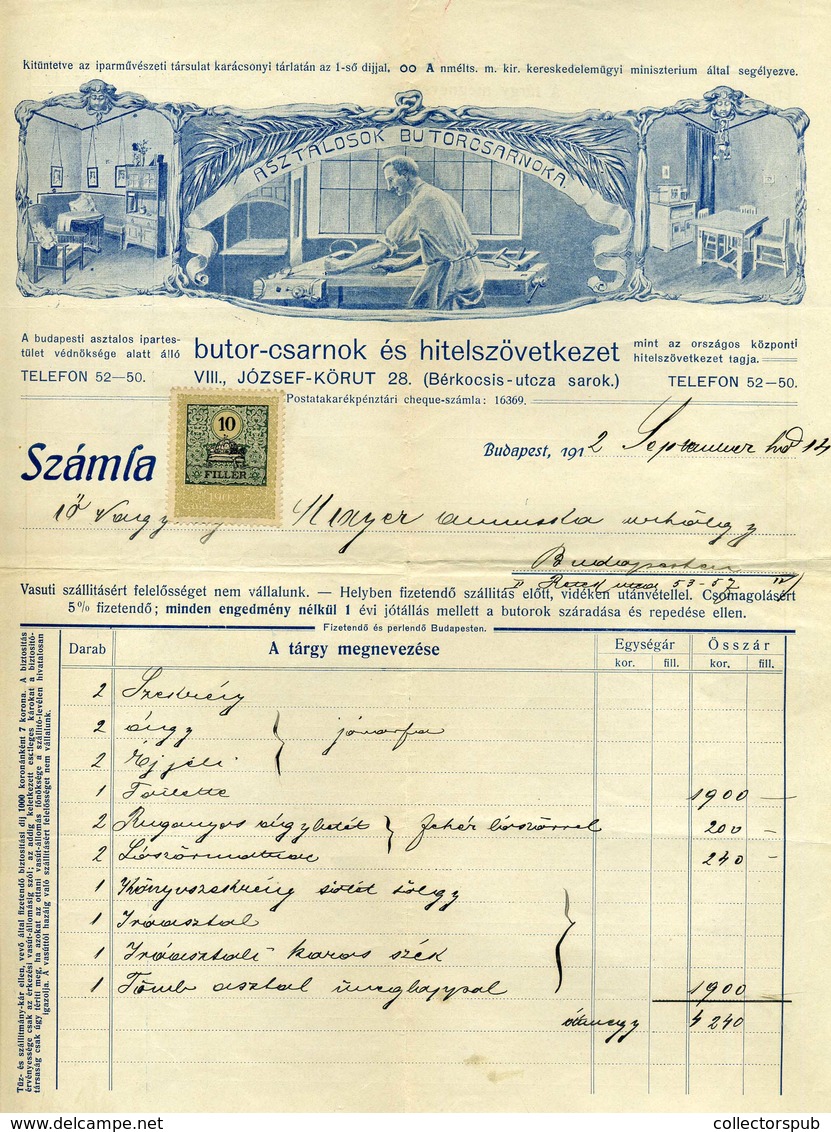 Kitüntetve az iparművészeti társulat karácsonyi tárlatán az 1-ső dijjal, oo A nmélts. m. kir. kereskedelemügyi miniszterium által segélyezve.
ASZTALOSOK BUTORCSARNOKA.
A budapesti asztalos ipartes-
tület védnöksége alatt álló
TELEFON 52—50.
butor-csarnok és hitelszövetkezet
VIII., JÓZSEF-KÖRUT 28. (Bérkocsis-utcza sarok.)
mint az országos központi
hitelszövetkezet tagja.
TELEFON 52—50.
Postatakarékpénztári cheque-számla: 16369.
10
FILLER
1903
Számla
Budapest, 1912 September hó 14
Budapesten
53-57
Vasuti szállitásért felelősséget nem vállalunk. — Helyben fizetendő szállítás előtt, vidéken utánvétellel. Csomagolásért
5% fizetendő; minden engedmény nélkül 1 évi jótállás mellett a butorok száradása és repedése ellen.
Fizetendő és perlendő Budapesten.
Darab A tárgy megnevezése Egységár Összár
kor. fill. kor. fill.
2 Szekrény
2 ágy
2 Éjjeli
1 Toilette 1900 —
2 Ruganyos ágybetét fehér lószőrrel 200 —
2 Lószőrmatrac 240 —
1 Könyvszekrény sötét tölgy
1 Íróasztal
1 Íróasztali karos szék
1 asztal üveglappal 1900
4240
Tűz- és szállítmány-kár ellen, vevő által fizetendő biztosítási dij 1000 koronánként 7 korona. A biztosítás
érvényessége csak az érkezési vasút-állomásig szól; az addig keletkezett esetleges károkat a biztosító-
társaság csak úgy téríti meg, ha azokat az ottani vasút-állomás főnöksége a szállító-levélen hivatalosan
igazolja. A vasúttól hazáig való szállításért felelősséget nem vállalunk.
collectorspub